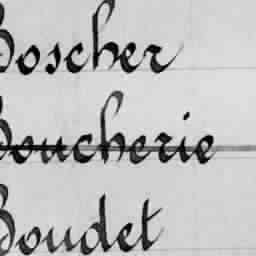 Boscher
Boucherie
Boudet